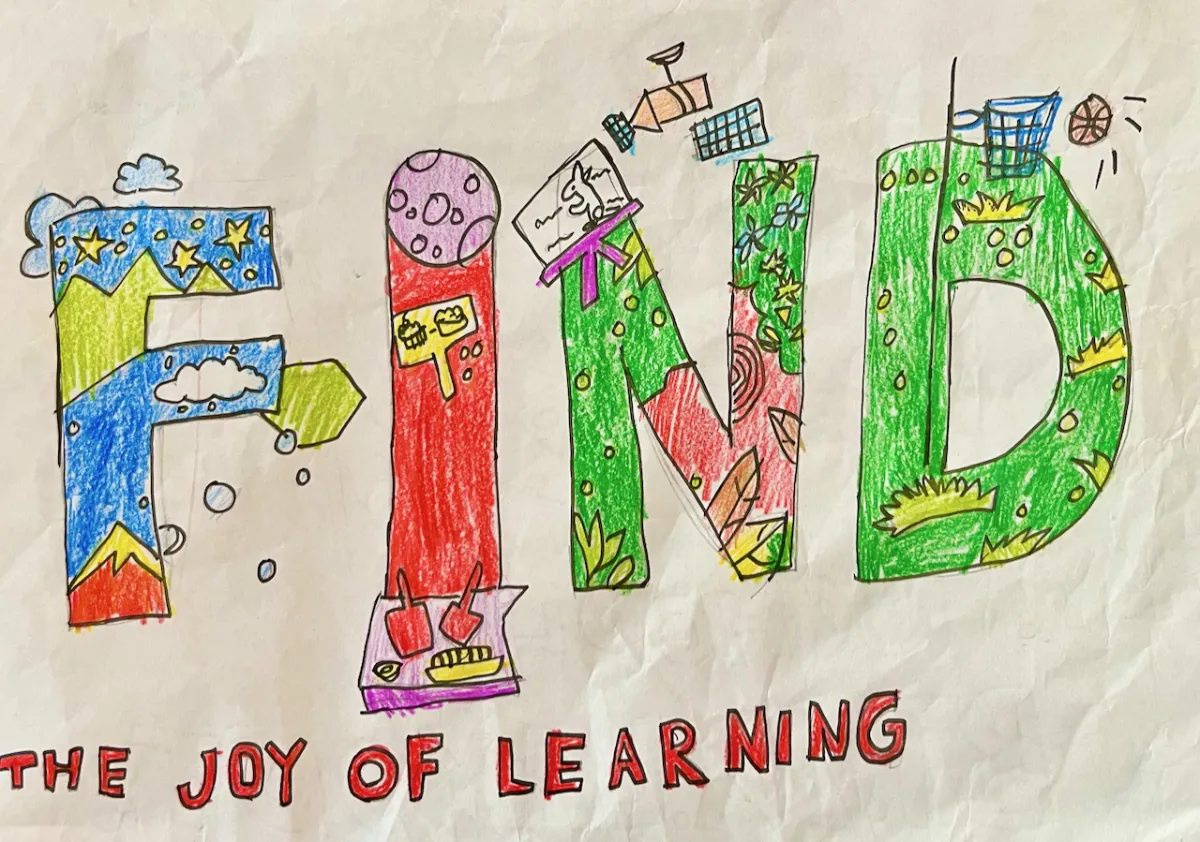 FIND
THE JOY OF LEARNING